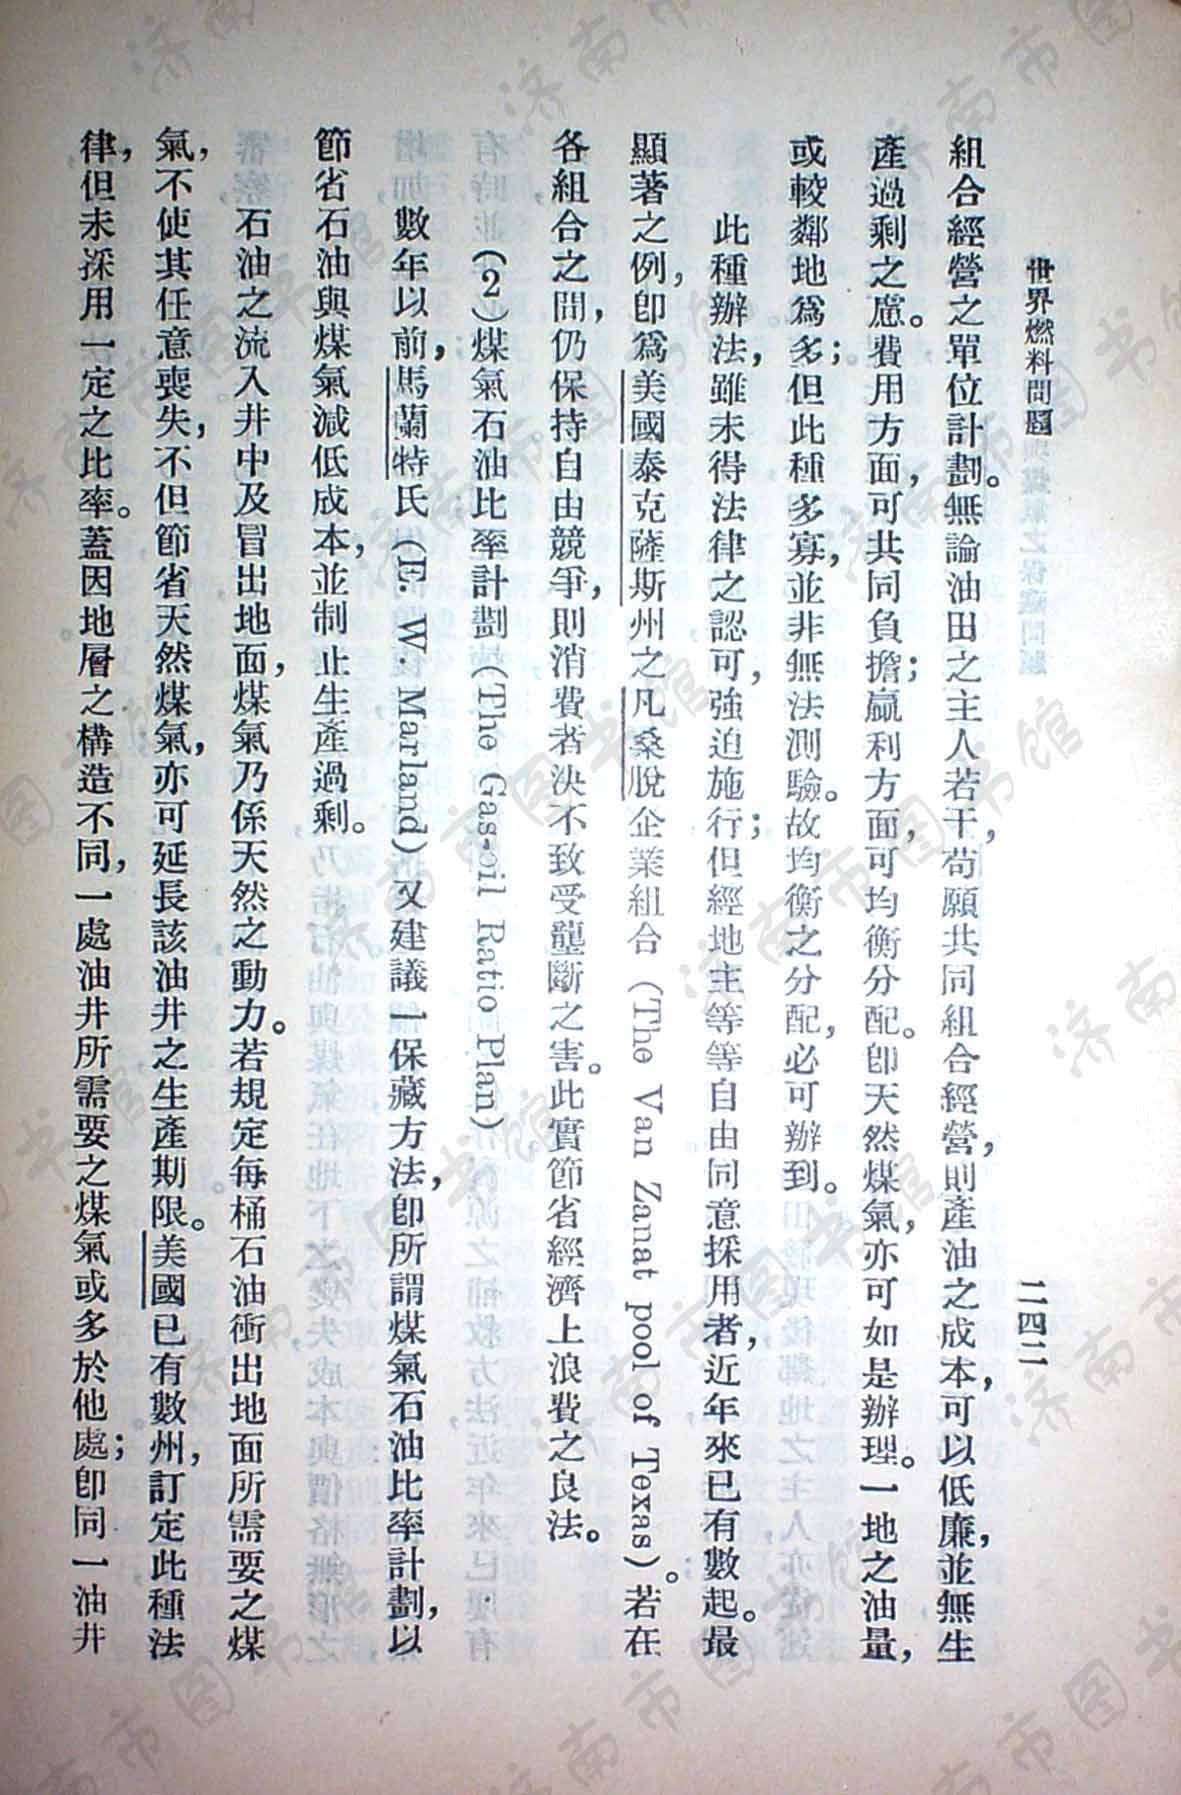 世界燃料問題
二四二
組合經營之單位計劃。無論油田之主人若干，苟願共同組合經營，則產油之成本，可以低廉，並無生
產過剩之慮。費用方面，可共同負擔；贏利方面，可均衡分配。卽天然煤氣，亦可如是辦理。一地之油量，
或較鄰地爲多；但此種多寡，並非無法測驗。故均衡之分配，必可辦到。
此種辦法，雖未得法律之認可，強迫施行；但經地主等等自由同意採用者，近年來已有數起。最
顯著之例，卽爲美國泰克薩斯州之凡桑脫企業組合（The Van Zanat pool of Texas）。若在
各組合之間，仍保持自由競爭，則消費者決不致受壟斷之害。此實節省經濟上浪費之良法。
（2）煤氣石油比率計劃（The Gas-oil Ratio Plan）
數年以前，馬蘭特氏（E. W. Marland）又建議一保藏方法，卽所謂煤氣石油比率計劃，以
節省石油與煤氣減低成本，並制止生產過剩。
石油之流入井中及冒出地面，煤氣乃係天然之動力。若規定每桶石油衝出地面所需要之煤
氣，不使其任意喪失，不但節省天然煤氣，亦可延長該油井之生產期限。美國已有數州，訂定此種法
律，但未採用一定之比率。蓋因地層之構造不同，一處油井所需要之煤氣或多於他處；卽同一油井
济南市图书馆